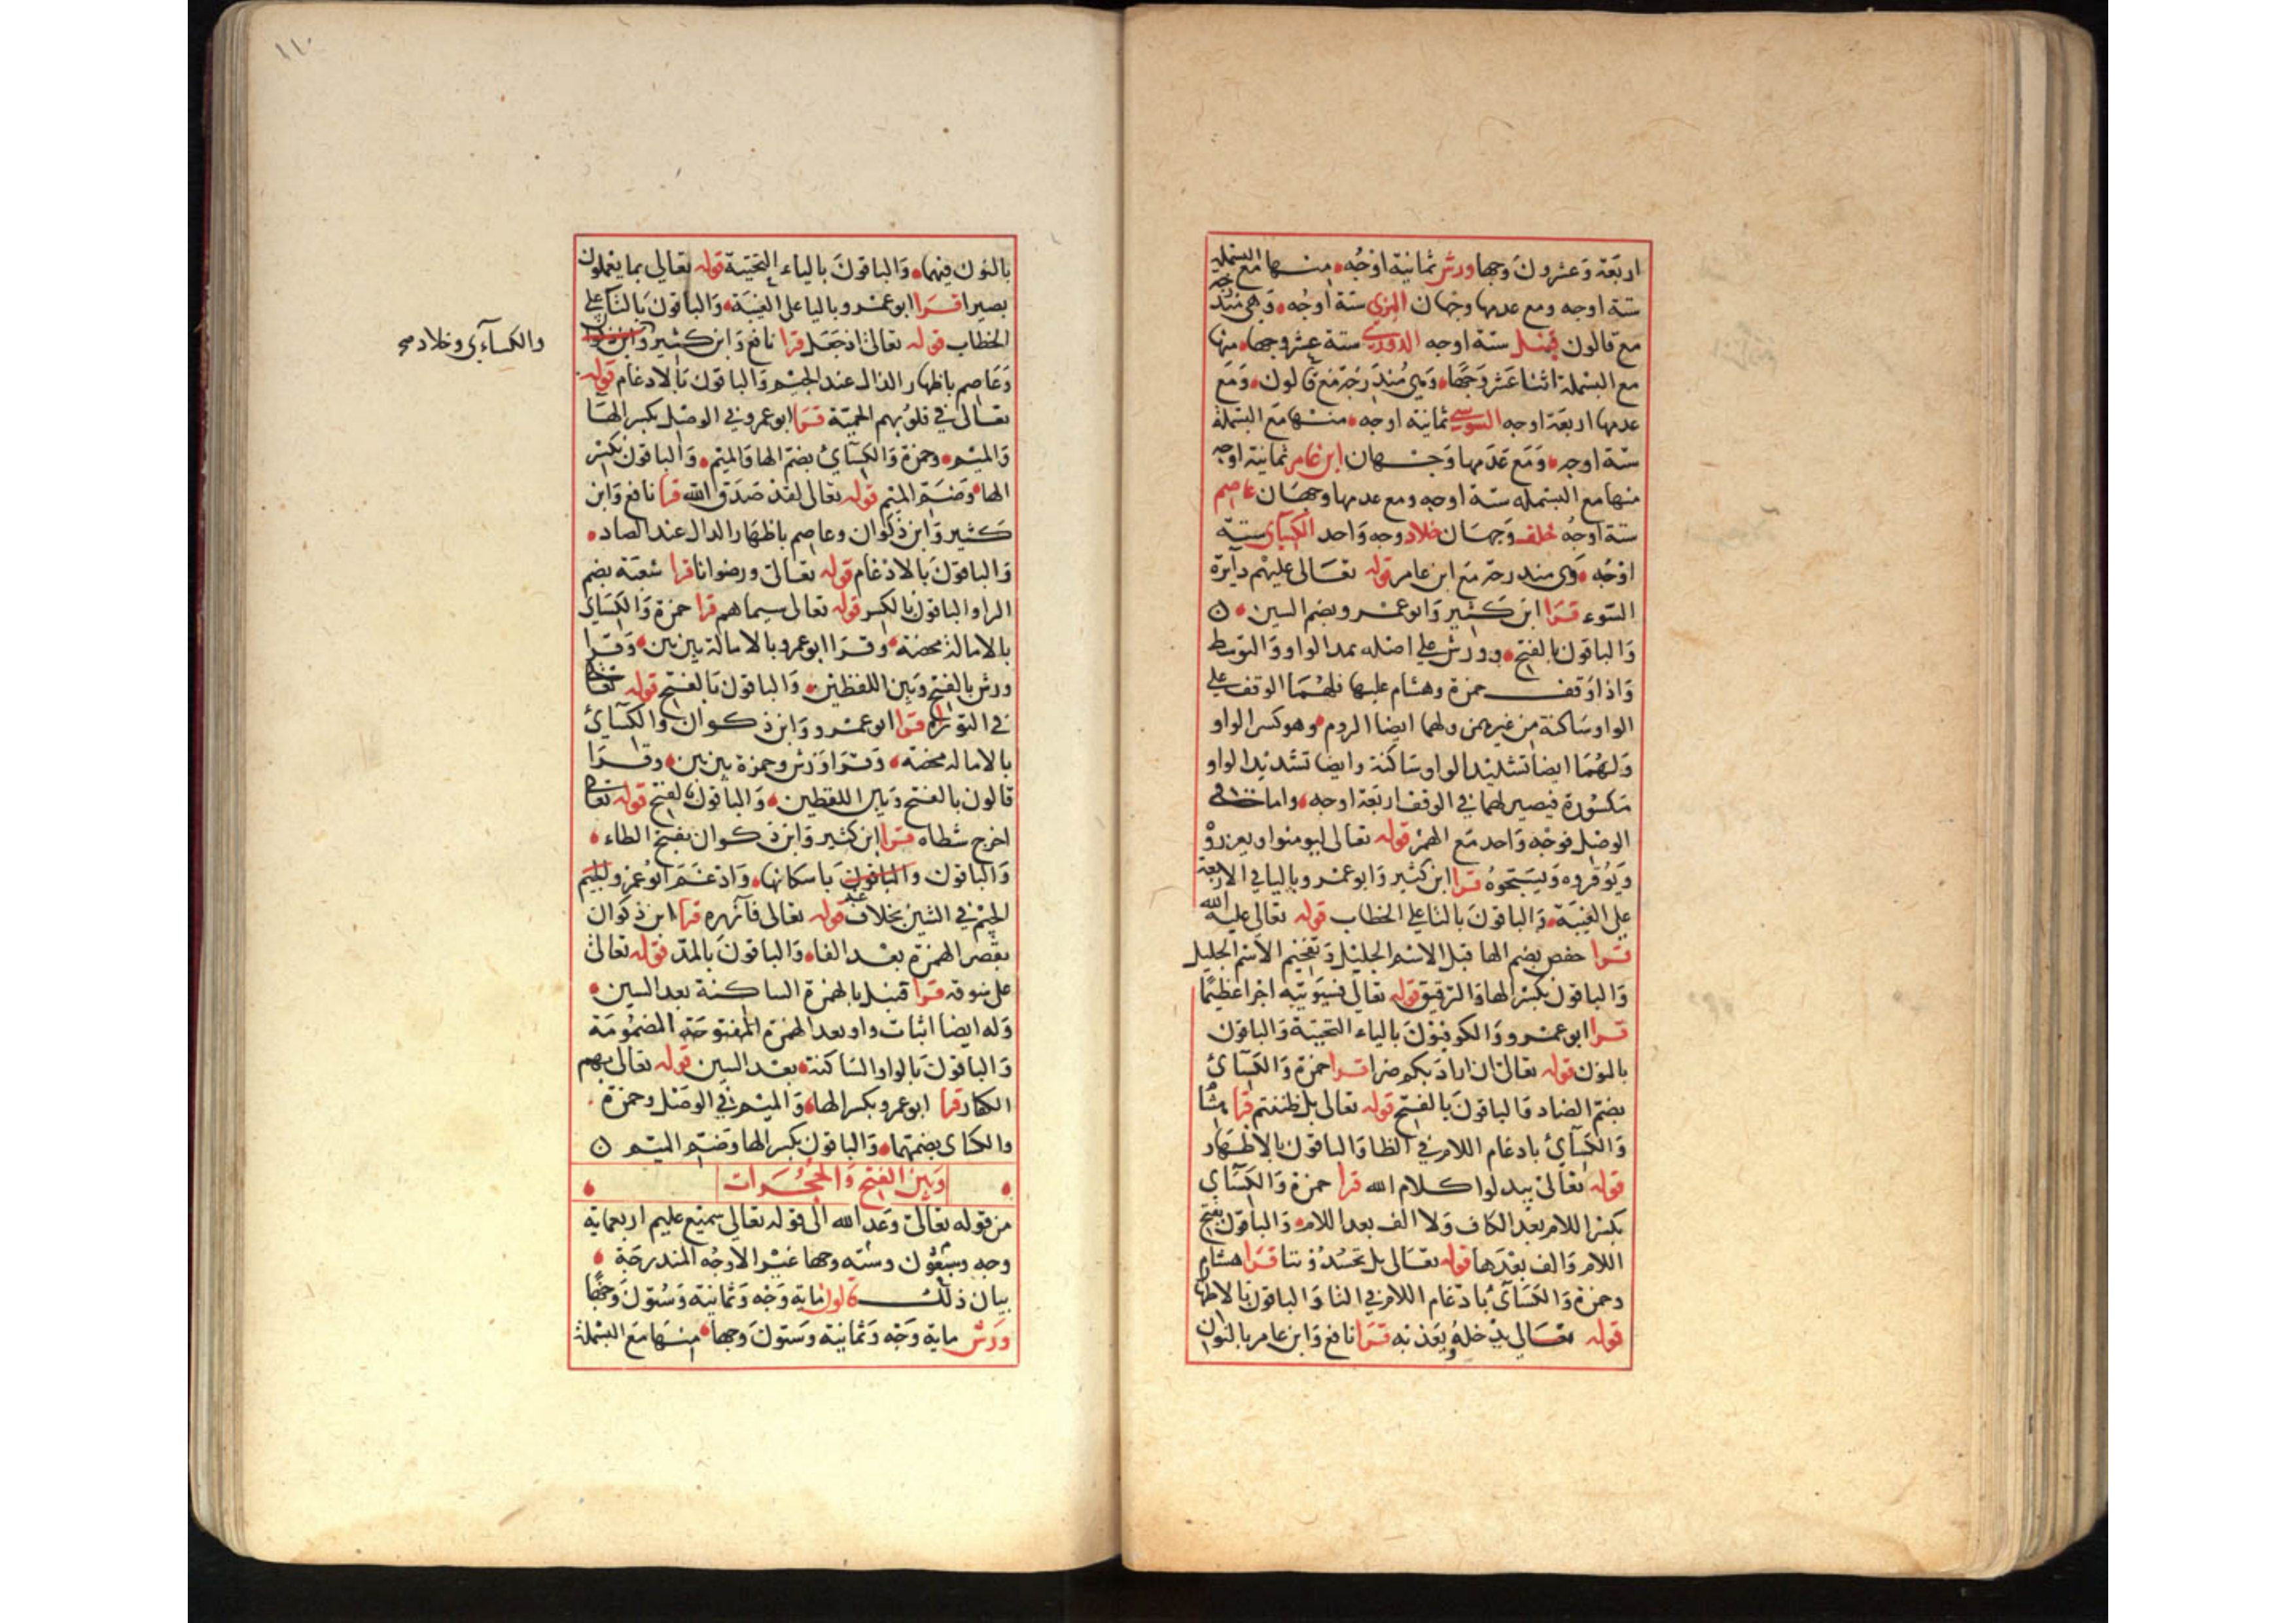 اربعة وعشرون وجها ورش ثمانية اوجه منها مع البسملة
ستة اوجه ومع عدمها وجهان البزي ستة اوجه وهي مندرجة
مع قالون قنبل ستة اوجه الدوري ستة عشر وجها منها
مع البسملة اثنا عشر وجها وهي مندرجة مع قالون ومع
عدمها اربعة اوجه السوسي ثمانية اوجه منها مع البسملة
ستة اوجه ومع عدمها وجهان ابن عامر ثمانية اوجه
منها مع البسمله ستة اوجه ومع عدمها وجهان عاصم
ستة اوجه خلف وجهان خلاد وجه واحد الكسآي ستة
اوجه وهي مندرجة مع ابن عامر قوله تعالى عليهم دآيرة
السوء قرا ابن كثير وابو عمرو بضم السين ن
والباقون بالفتح وورش على اصله بمد الواو والتوسط
واذا وقف حمزة وهشام عليها فلهما الوقف على
الواو ساكنة من غير همز ولهما ايضا الروم وهو كسر الواو
ولهما ايضا تشديد الواو ساكنة وايضا تشديد الواو
مكسورة فيصير لهما في الوقف اربعة اوجه واما في
الوصل فوجه واحد مع الهمز قوله تعالى ليومنوا ويعزروه
ويوقروه ويسبحوه قرا ابن كثير وابو عمرو باليا في الاربعة
على الغيبة والباقون بالتا على الخطاب قوله تعالى عليه الله
قرا حفص بضم الها قبل الاسم الجليل وتفخيم الاسم الجليل
والباقون بكسر الها والترقيق قوله تعالى فسيوتيه اجرا عظيما
قرا ابو عمرو والكوفيون بالياء التحتية والباقون
بالنون قوله تعالى ان اراد بكم ضرا قرا حمزة والكسآئ
بضم الضاد والباقون بالفتح قوله تعالى بل ظننتم قرا هشام
والكسآئ بادغام اللام في الظا والباقون بالاظهار
قوله تعالى يبدلوا كلام الله قرا حمزة والكسآي
بكسر اللام بعد الكاف ولا الف بعد اللام والباقون بفتح
اللام والف بعدها قوله تعالى بل تحسدوننا قرا هشام
وحمزة والكسآئ بادغام اللام في التا والباقون بالاظهار
قوله تعالى يدخله ويعذبه قرا نافع وابن عامر بالنون
١١٠
بالنون فيهما والباقون بالياء التحتية قوله تعالى بما يعملون
بصيرا قرا ابو عمرو باليا على الغيبة والباقون بالتا على
الخطاب قوله تعالى اذ جعل قرا نافع وابن كثير وابن ذكوان
وعاصم باظهار الذال عند الجيم والباقون بالادغام قوله
تعالى في قلوبهم الحمية قرا ابو عمرو في الوصل بكسر الهآ
والميم وحمزة والكسآئ بضم الها والميم والباقون بكسر
الها وضم الميم قوله تعالى لقد صدق الله قرا نافع وابن
كثير وابن ذكوان وعاصم باظهار الدال عند الصاد
والباقون بالادغام قوله تعالى ورضوانا قرا شعبة بضم
الرا والباقون بالكسر قوله تعالى سيماهم قرا حمزة والكسآي
بالامالة محضة وقرا ابو عمرو بالامالة بين بين وقرا
ورش بالفتح وبين اللفظين والباقون بالفتح قوله تعالى
في التوراة قرا ابو عمرو وابن ذكوان والكسآئ
بالامالة محضة وقرا ورش وحمزة بين بين وقرا
قالون بالفتح وبين اللفظين والباقون بالفتح قوله تعالى
اخرج شطاه قرا ابن كثير وابن ذكوان بفتح الطاء
والباقون والباقون باسكانها وادغم ابو عمرو الجيم
الجيم في الشين بخلاف عنه قوله تعالى فآزره قرا ابن ذكوان
بقصر الهمزة بعد الفا والباقون بالمد قوله تعالى
على سوقه قرا قنبل بالهمزة الساكنة بعد السين
وله ايضا اثبات واو بعد الهمزة المفتوحة المضمومة
والباقون بالواو الساكنة بعد السين قوله تعالى بهم
الكفار قرا ابو عمرو بكسر الها والميم في الوصل وحمزة
والكسآى بضمهما والباقون بكسر الها وضم الميم ن
وبين الفتح والحجرات
من قوله تعالى وعد الله الى قوله تعالى سميع عليم اربعماية
وجه وسبعون وستة وجها غير الاوجه المندرجة
بيان ذلك قالون ماية وجه وثمانية وستون وجها
ورش ماية وجه وثمانية وستون وجها منها مع البسملة
والكسآءي وخلاد صح